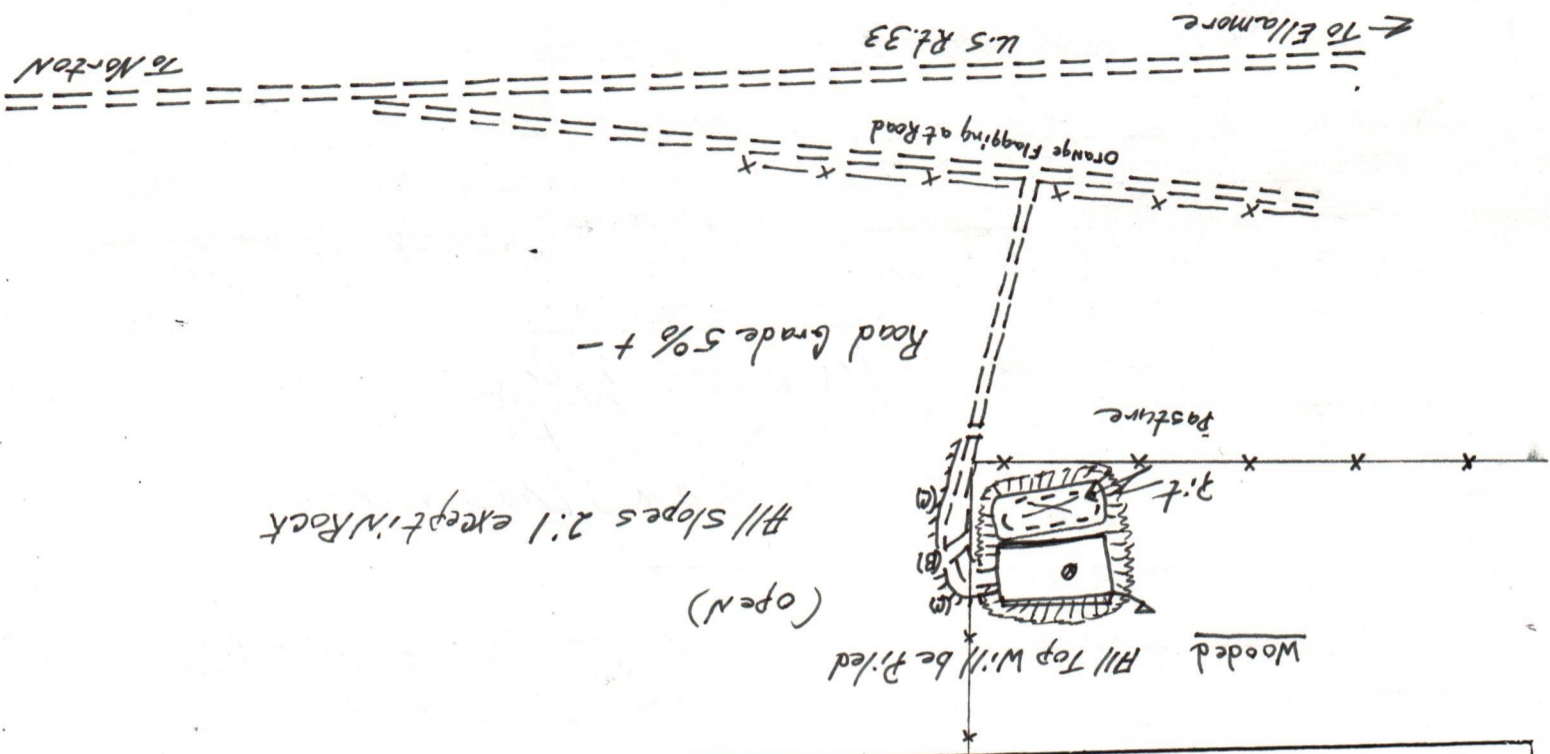 Wooded
All Top Will be Piled
(open)
(B)
All slopes 2:1 except in Rock
(C)
Pit
Pasture
Road Grade 5% + -
Orange Flagging at Road
To Norton
U.S Rt.33
← To Ellamore